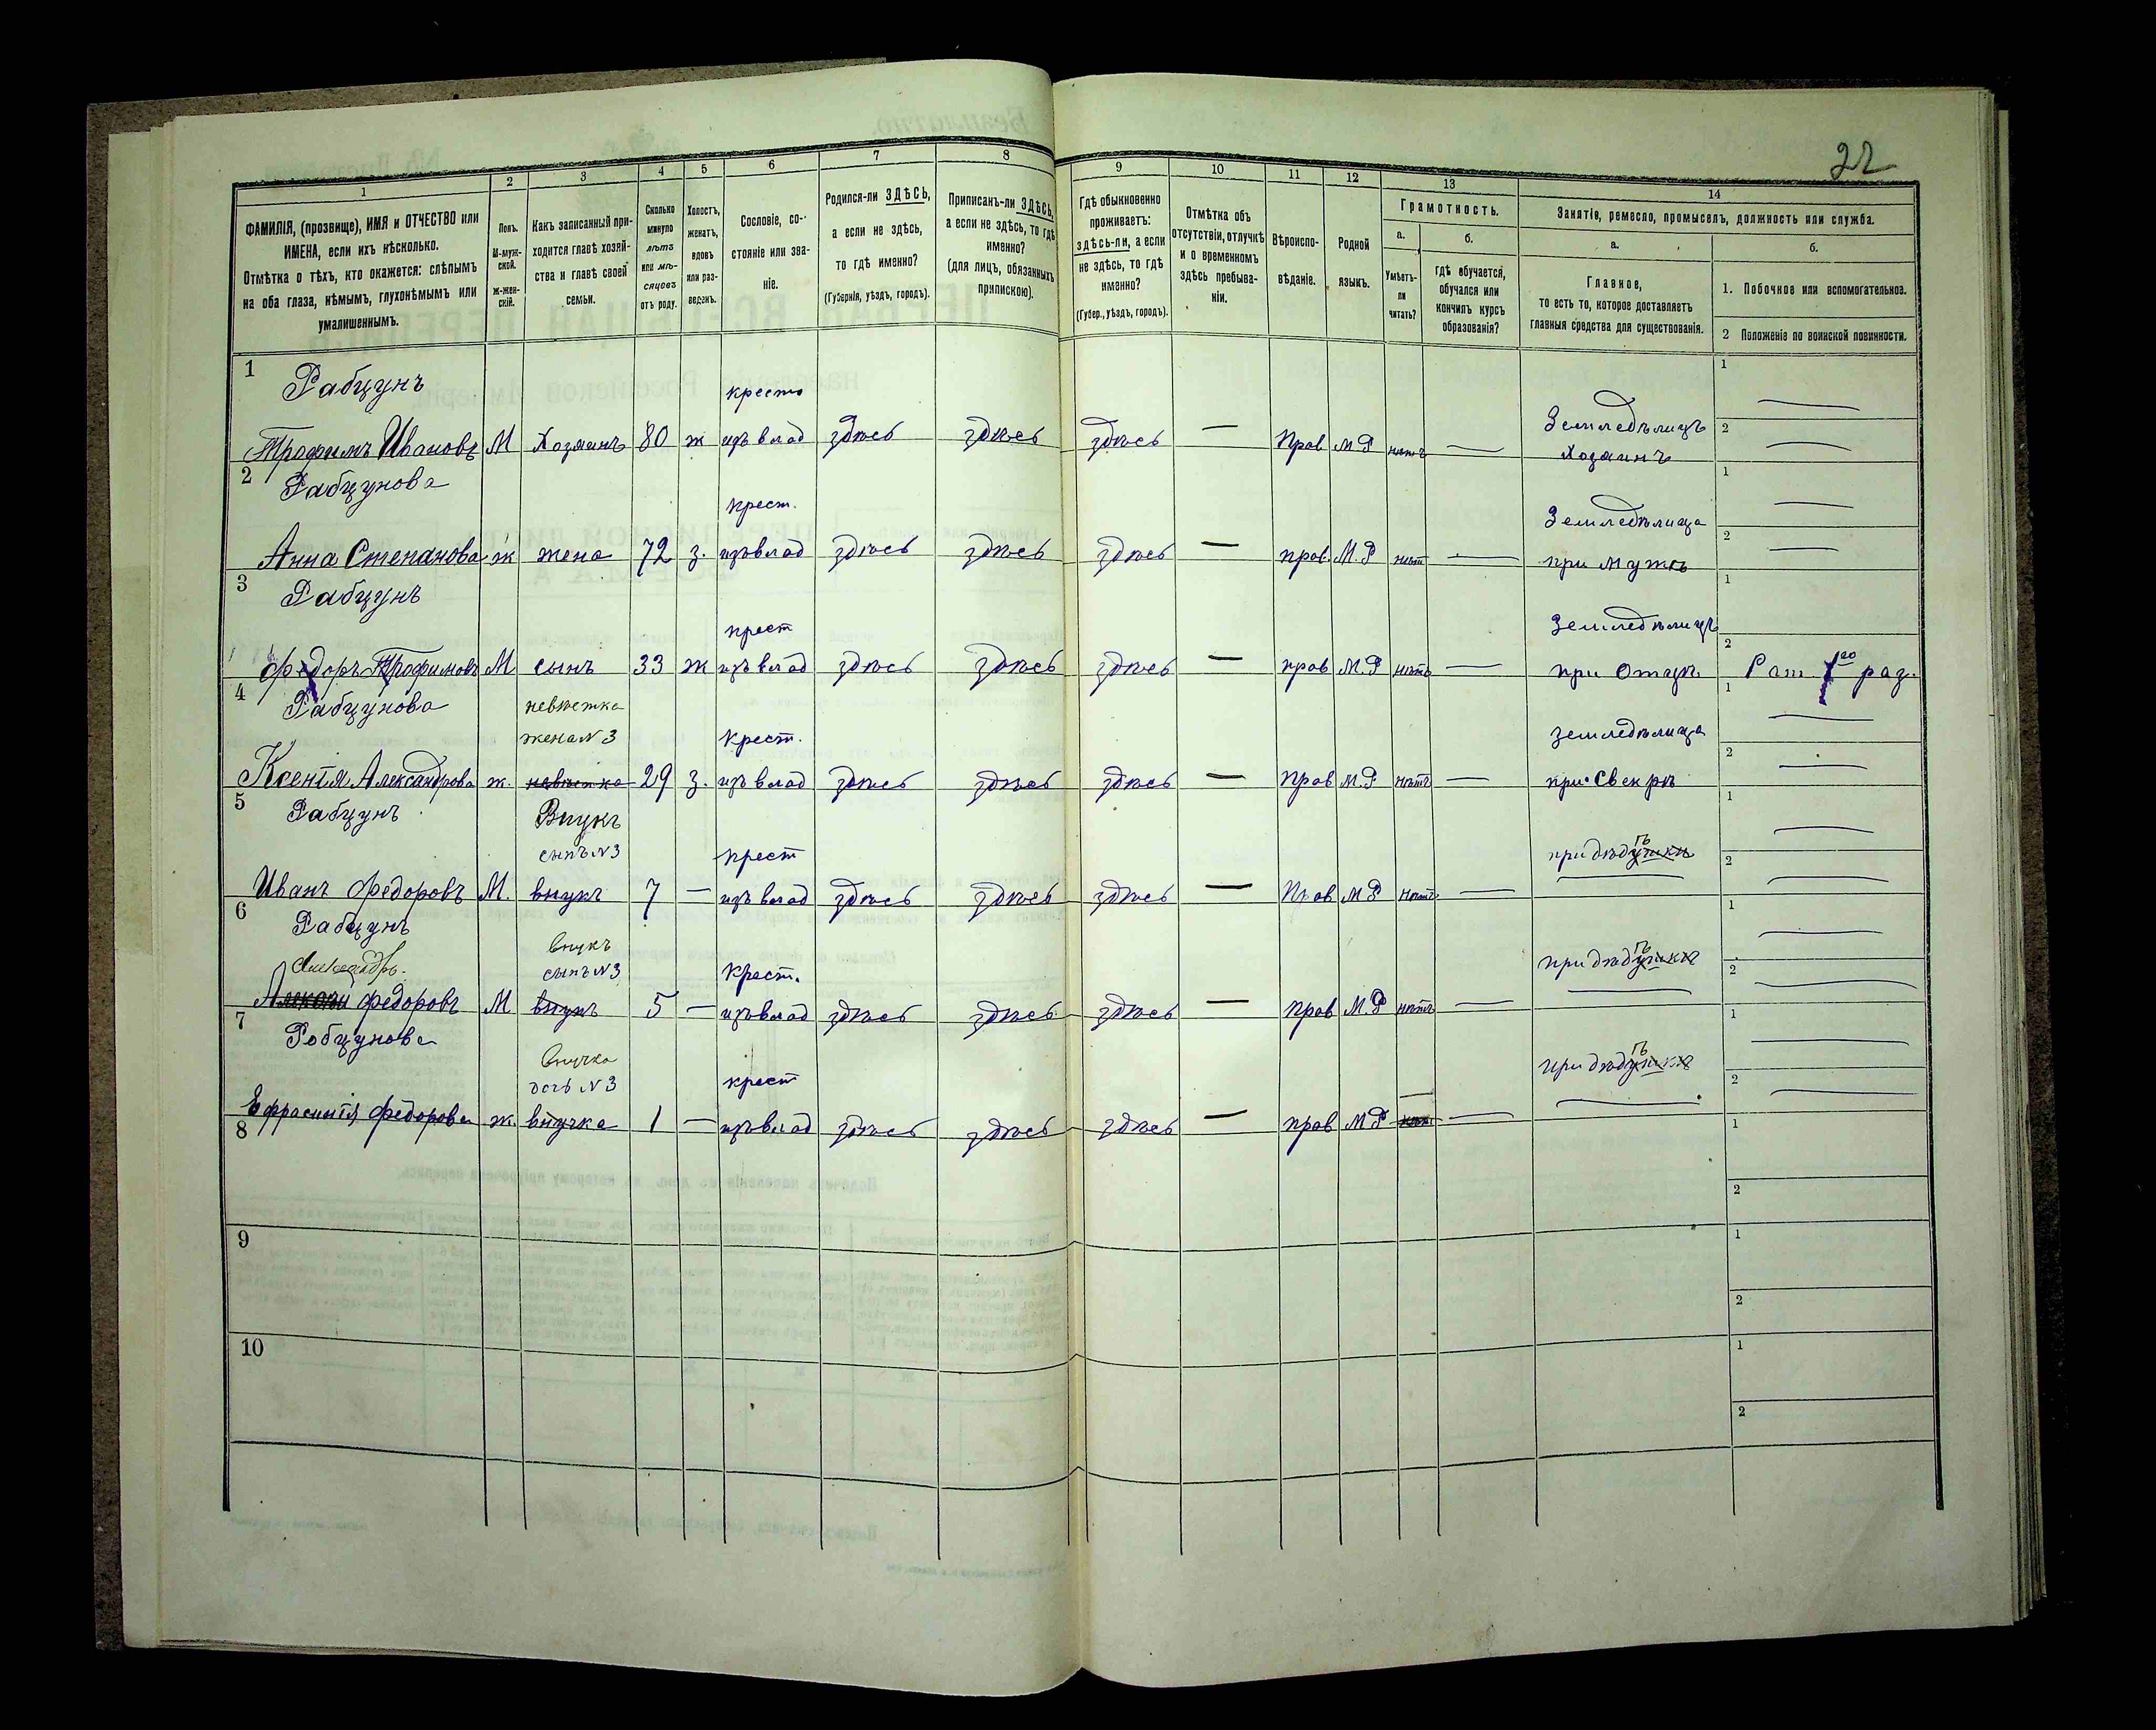 22
1 2 3 4 5 6 7 8 9 10 11 12 13 14
ФАМИЛІЯ, (прозвище), ИМЯ и ОТЧЕСТВО или
ИМЕНА, если ихъ нѣсколько.
Отмѣтка о тѣхъ, кто окажется: слѣпымъ
на оба глаза, нѣмымъ, глухонѣмымъ или
умалишеннымъ.
Полъ.
М-муж-
ской.
Ж-жен-
скій.
Какъ записанный при-
ходится главѣ хозяй-
ства и главѣ своей
семьи.
Сколько
минуло
лѣтъ
или мѣ-
сяцевъ
отъ роду.
Холостъ,
женатъ,
вдовъ
или раз-
веденъ.
Сословіе, со-
стояніе или зва-
ніе.
Родился-ли ЗДѢСЬ,
а если не здѣсь,
то гдѣ именно?
(Губернія, уѣздъ, городъ).
Приписанъ-ли ЗДѢСЬ,
а если не здѣсь, то гдѣ
именно?
(для лицъ, обязанныхъ
припискою).
Гдѣ обыкновенно
проживаетъ:
здѣсь-ли, а если
не здѣсь, то гдѣ
именно?
(Губер., уѣздъ, городъ).
Отмѣтка объ
отсутствіи, отлучкѣ
и о временномъ
здѣсь пребыва-
ніи.
Вѣроиспо-
вѣданіе.
Родной
языкъ.
Грамотность.
а.
Умѣетъ-
ли
читать?
б.
гдѣ обучается,
обучался или
кончилъ курсъ
образованія?
Занятіе, ремесло, промыселъ, должность или служба.
а.
Главное,
то есть то, которое доставляетъ
главныя средства для существованія.
б.
1. Побочное или вспомогательное.
2 Положеніе по воинской повинности.
1 Рабцунъ 1
крест
Трофимъ Ивановъ М Хозяинъ 80 ж изъ влад здѣсь здѣсь здѣсь — Прав М Р нѣтъ — Земледѣлицъ Хозяинъ — 2 —
2 Рабцунова 1
крест.
Анна Степанова ж жена 72 з. изъ влад здѣсь здѣсь здѣсь — прав. М.Р нѣт — Земледѣлица при мужѣ — 2 —
3 Рабцунъ 1
крест
Федоръ Трофимовъ М сынъ 33 ж изъ влад здѣсь здѣсь здѣсь — прав М.Р нѣтъ — Земледѣлицъ при Отцѣ 2 Рат. 1го раз.
4 Рабцунова невѣстка 1
жена N 3 крест.
Ксенія Александрова ж. невѣстка 29 з. изъ влад здѣсь здѣсь здѣсь — Прав М.Р нѣтъ — земледѣлица при Свекрѣ — 2 —
5 Рабцунъ Внукъ 1
сынъ N 3 крест
Иванъ Федоровъ М. внукъ 7 — изъ влад здѣсь здѣсь здѣсь — Прав М Р нѣтъ — при дѣдушкѣ — 2 —
6 Рабцунъ 1
внукъ
Александръ. сынъ N 3 крест.
Федоровъ М внукъ 5 — изъ влад здѣсь здѣсь здѣсь — прав М.Р нѣтъ — при дѣдушкѣ — 2 —
7 Рабцунова 1
внучка
дочь N 3 крест
Ефросинія Федорова ж. внучка 1 — изъ влад здѣсь здѣсь здѣсь — прав М Р — при дѣдушкѣ — 2 —
8 1
2
9 1
2
10 1
2